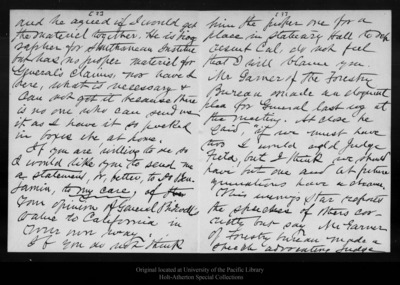 283
and he agreed if I would get
the material together. He is biog-
rapher for Smithsonian Institute
but has no proper material for
General's claims, nor have I
here, what is necessary &
can not get it because there
is no one who can send me
it as I have it so packed
in boxes etc at home.
If you are willing to do so
I would like you to send me
a statement, or better, to Dr. Ben-
jamin, to my care, of
Your opinion of General Bidwell's
value to California in
Your own way.
If you do not think
him the proper one for a
place in Statuary Hall to rep-
resent Cal. do not feel
that I will blame you.
Mr Garner of the Forestry
Bureau made an eloquent
plea for General last eve at
the meeting. At close he
said "if we must have
two I would add Judge
Field, but I think we should
have but one and let future
generations have a chance.
This evening's Star reports
the speeches of others cor-
rectly but say Mr Garner
of Forestry bureau made a
speech advocating Judge
Original located at University of the Pacific Library
Holt-Atherton Special Collections